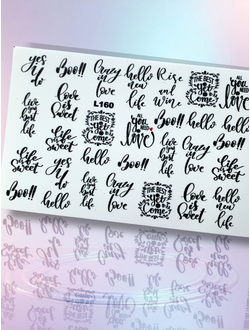 yes
I
do
Boo!!
Crazy
in
love
hello
new
life
Rise
and
wine
THE BEST
IS
yet
to
Come
all
YOU
NEED
IS
love
live
your
best
life
Love
is
sweet
L160
THE BEST
IS
yet
to
Come
hello
new
life
Boo!!
hello
hello
Life
is
sweet
yes
I
do
hello
Boo!!
live
your
best
life
Crazy
in
love
Life
is
sweet
Boo!!
hello
Crazy
in
love
Boo!!
THE BEST
IS
yet
to
Come
Love
is
sweet
hello
new
life